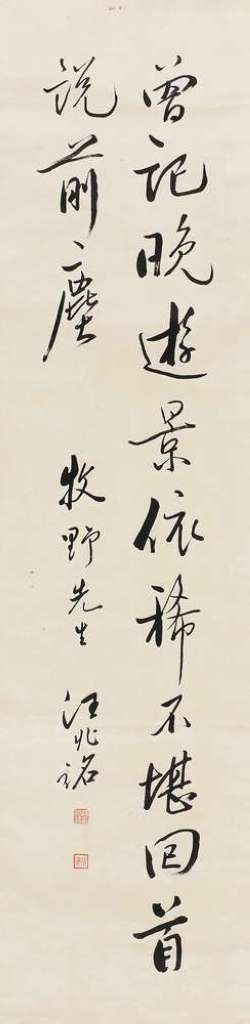 曾记晚遊景依稀不堪回首
说前塵
牧野先生
汪兆铭